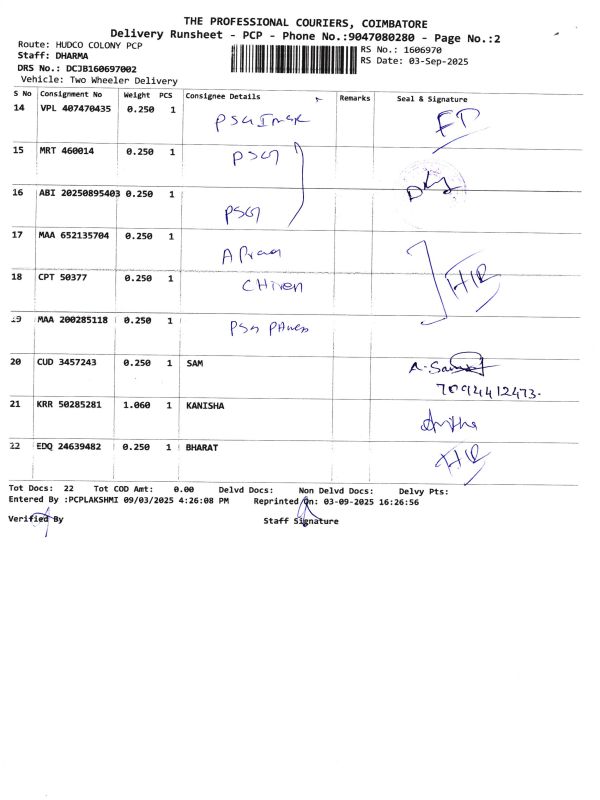 THE PROFESSIONAL COURIERS, COIMBATORE
Delivery Runsheet - PCP - Phone No.:9047080280 - Page No.:2
Route: HUDCO COLONY PCP
Staff: DHARMA
DRS No.: DCJB160697002
Vehicle: Two Wheeler Delivery
RS No.: 1606970
RS Date: 03-Sep-2025
S No Consignment No Weight PCS Consignee Details Remarks Seal & Signature
14 VPL 407470435 0.250 1
15 MRT 460014 0.250 1 PSG
16 ABI 20250895403 0.250 1 PSG
17 MAA 652135704 0.250 1
18 CPT 50377 0.250 1
19 MAA 200285118 0.250 1 PSG
20 CUD 3457243 0.250 1 SAM
7094412473.
21 KRR 50285281 1.060 1 KANISHA
22 EDQ 24639482 0.250 1 BHARAT
Tot Docs: 22 Tot COD Amt: 0.00 Delvd Docs: Non Delvd Docs: Delvy Pts:
Entered By :PCPLAKSHMI 09/03/2025 4:26:08 PM Reprinted On: 03-09-2025 16:26:56
Verified By Staff Signature